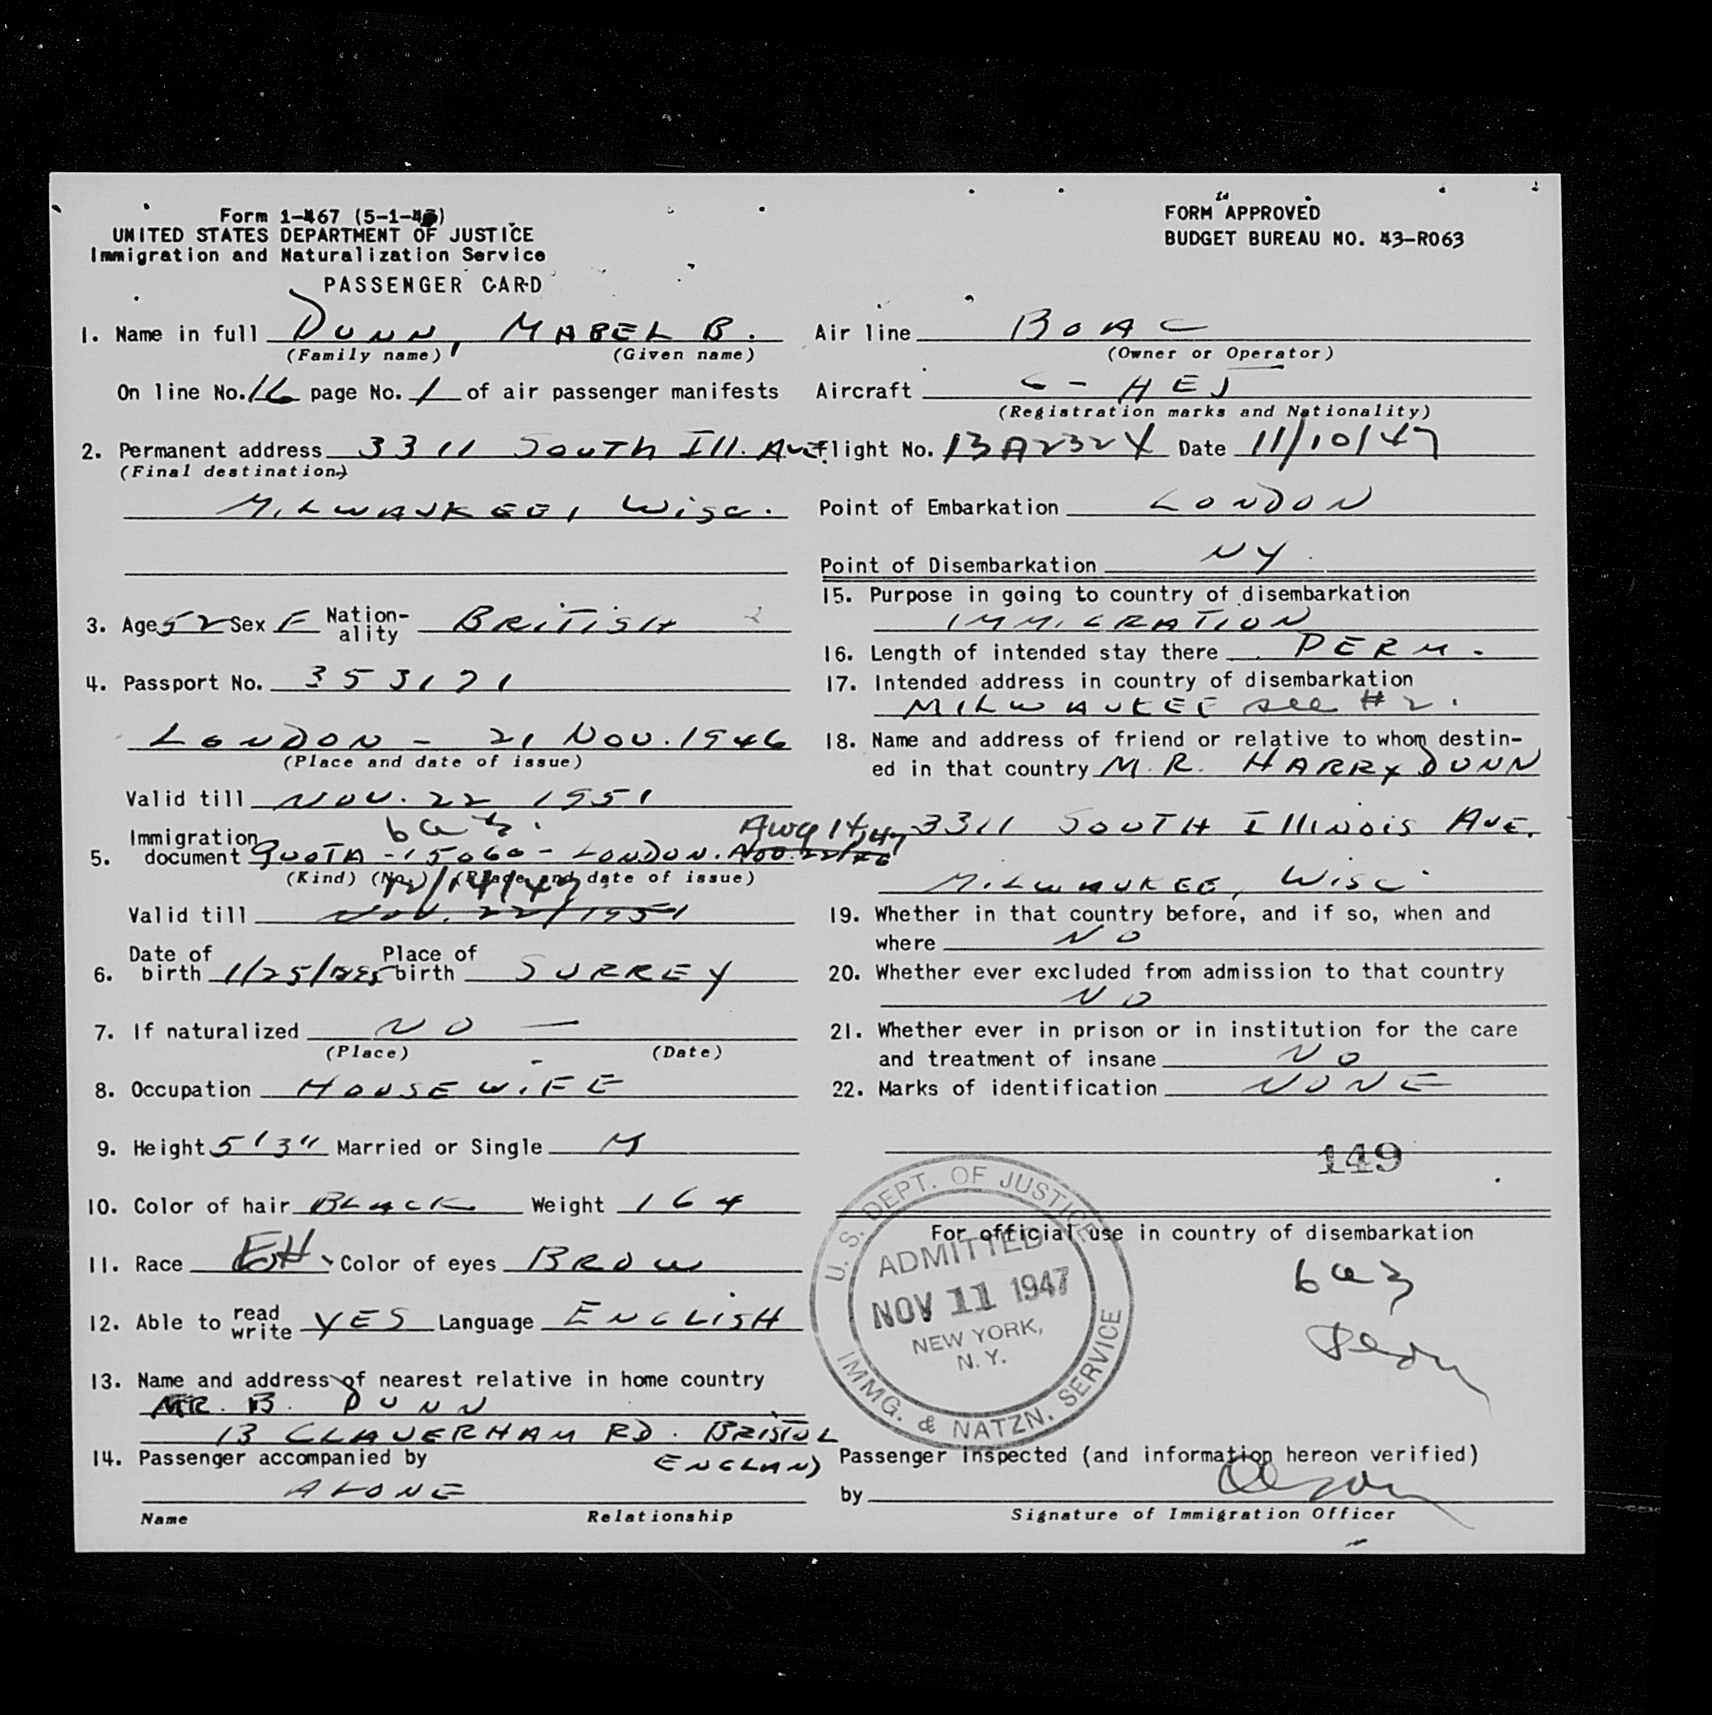 Form 1-467 (5-1-45)
UNITED STATES DEPARTMENT OF JUSTICE
Immigration and Naturalization Service
PASSENGER CARD
FORM APPROVED
BUDGET BUREAU NO. 43-R063
1. Name in full DUNN, MABEL B.
(Family name) (Given name)
On line No. 16 page No. 1 of air passenger manifests
2. Permanent address 3311 SOUTH Ill. AVE.
(Final destination)
MILWAUKEE, Wisc.
3. Age 52 Sex F Nation-ality BRITISH
4. Passport No. 353171
LONDON - 21 NOV. 1946
(Place and date of issue)
Valid till NOV. 22 1951
6a3. Aug 14, 47
5. Immigration document QUOTA - 15060 - LONDON. NOV. 22/46
(Kind) (No.) (Place and date of issue)
12/14/47
Valid till NOV. 22/1951
6. Date of birth 1/25/1895 Place of birth SURREY
7. If naturalized NO —
(Place) (Date)
8. Occupation HOUSEWIFE
9. Height 5'3" Married or Single M
10. Color of hair BLACK Weight 164
11. Race Color of eyes BROW
12. Able to read write YES Language ENGLISH
13. Name and address of nearest relative in home country
MR. B. DUNN
13 CLAVERHAM RD. BRISTOL
ENGLAND
14. Passenger accompanied by
ALONE
Name Relationship
Air line BOAC
(Owner or Operator)
Aircraft G - HEJ
(Registration marks and Nationality)
Flight No. BA232Y Date 11/10/47
Point of Embarkation LONDON
Point of Disembarkation NY
15. Purpose in going to country of disembarkation
IMMIGRATION
16. Length of intended stay there PERM.
17. Intended address in country of disembarkation
MILWAUKEE see #2.
18. Name and address of friend or relative to whom destin-
ed in that country M.R. HARRY DUNN
3311 SOUTH IllINOiS AVE.
MILWAUKEE, WISC
19. Whether in that country before, and if so, when and
where NO
20. Whether ever excluded from admission to that country
NO
21. Whether ever in prison or in institution for the care
and treatment of insane NO
22. Marks of identification NONE
149
For official use in country of disembarkation
6a3
U.S. DEPT. OF JUSTICE
ADMITTED
NOV 11 1947
NEW YORK,
N.Y.
IMMG. & NATZN. SERVICE
Passenger inspected (and information hereon verified)
by
Signature of Immigration Officer